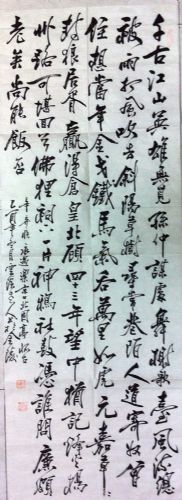 千古江山英雄無覓孫仲謀處舞榭歌臺風流總
被雨打風吹去斜陽草樹尋常巷陌人道寄奴曾
住想當年金戈鐵馬氣吞萬里如虎元嘉草草
封狼居胥贏得倉皇北顧四十三年望中猶記烽火揚
州路可堪回首佛狸祠下一片神鴉社鼓憑誰問廉頗
老矣尚能飯否
辛棄疾永遇樂京口北固亭懷古